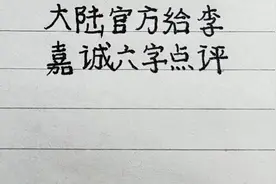 大陆官方给李
嘉诚六字点评